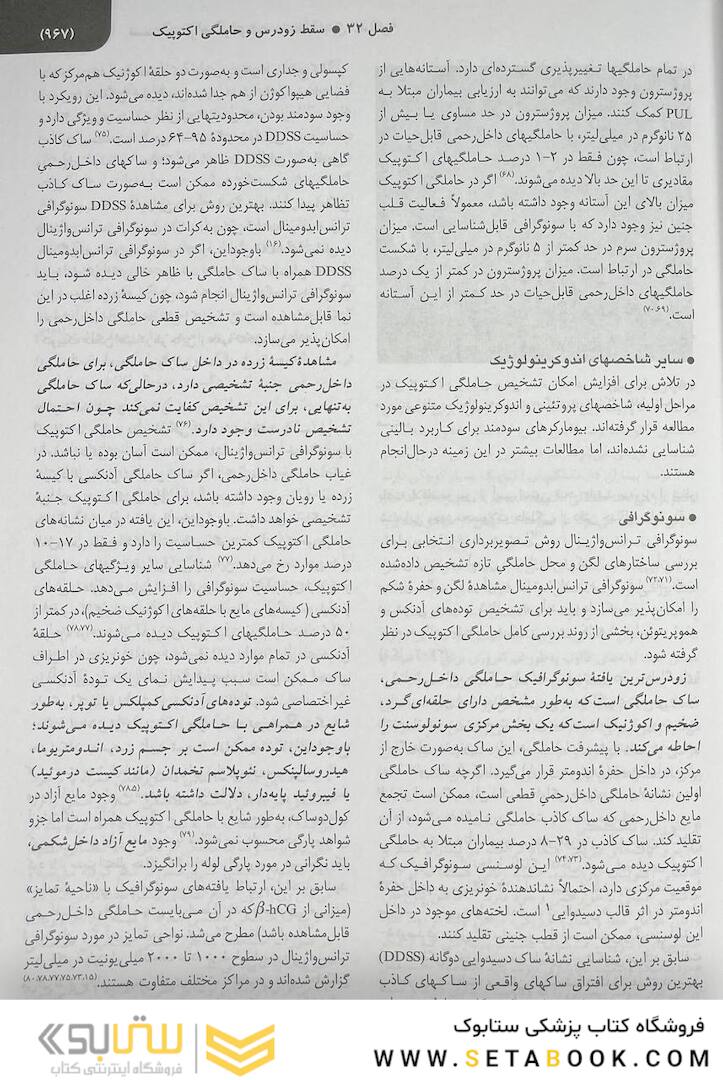 فصل ۳۲ ● سقط زودرس و حاملگی اکتوپیک
(۹۶۷)
در تمام حاملگیها تغییرپذیری گسترده‌ای دارد. آستانه‌هایی از
پروژسترون وجود دارند که می‌توانند به ارزیابی بیماران مبتلا به
PUL کمک کنند. میزان پروژسترون در حد مساوی یا بیش از
۲۵ نانوگرم در میلی‌لیتر، با حاملگیهای داخل‌رحمی قابل‌حیات در
ارتباط است، چون فقط در ۲-۱ درصد حاملگیهای اکتوپیک
مقادیری تا این حد بالا دیده می‌شوند.(۶۸) اگر در حاملگی اکتوپیک
میزان بالای این آستانه وجود داشته باشد، معمولاً فعالیت قلب
جنین نیز وجود دارد که با سونوگرافی قابل‌شناسایی است. میزان
پروژسترون سرم در حد کمتر از ۵ نانوگرم در میلی‌لیتر، با شکست
حاملگی در ارتباط است. میزان پروژسترون در کمتر از یک درصد
حاملگیهای داخل‌رحمی قابل‌حیات در حد کمتر از این آستانه
است.(۷۰،۶۹)
● سایر شاخصهای اندوکرینولوژیک
در تلاش برای افزایش امکان تشخیص حاملگی اکتوپیک در
مراحل اولیه، شاخصهای پروتئینی و اندوکرینولوژیک متنوعی مورد
مطالعه قرار گرفته‌اند. بیومارکرهای سودمند برای کاربرد بالینی
شناسایی نشده‌اند، اما مطالعات بیشتر در این زمینه درحال‌انجام
هستند.
● سونوگرافی
سونوگرافی ترانس‌واژینال روش تصویربرداری انتخابی برای
بررسی ساختارهای لگن و محل حاملگی تازه تشخیص داده‌شده
است.(۷۲،۷۱) سونوگرافی ترانس‌ابدومینال مشاهدهٔ لگن و حفرهٔ شکم
را امکان‌پذیر می‌سازد و باید برای تشخیص توده‌های آدنکس و
هموپریتوئن، بخشی از روند بررسی کامل حاملگی اکتوپیک در نظر
گرفته شود.
زودرس‌ترین یافتهٔ سونوگرافیک حاملگی داخل‌رحمی،
ساک حاملگی است که به‌طور مشخص دارای حلقه‌ای گرد،
ضخیم و اکوژنیک است که یک بخش مرکزی سونولوسنت را
احاطه می‌کند. با پیشرفت حاملگی، این ساک به‌صورت خارج از
مرکز، در داخل حفرهٔ اندومتر قرار می‌گیرد. اگرچه ساک حاملگی
اولین نشانهٔ حاملگی داخل‌رحمی قطعی است، ممکن است تجمع
مایع داخل‌رحمی که ساک کاذب حاملگی نامیده می‌شود، از آن
تقلید کند. ساک کاذب در ۲۹-۸ درصد بیماران مبتلا به حاملگی
اکتوپیک دیده می‌شود.(۷۴،۷۳) این لوسنسی سونوگرافیک که
موقعیت مرکزی دارد، احتمالاً نشاندهندهٔ خونریزی به داخل حفرهٔ
اندومتر در اثر قالب دسیدوایی۱ است. لخته‌های موجود در داخل
این لوسنسی، ممکن است از قطب جنینی تقلید کنند.
سابق بر این، شناسایی نشانهٔ ساک دسیدوایی دوگانه (DDSS)
بهترین روش برای افتراق ساکهای واقعی از ساکهای کاذب
کپسولی و جداری است و به‌صورت دو حلقهٔ اکوژنیک هم‌مرکز که با
فضایی هیپواکوژن از هم جدا شده‌اند، دیده می‌شود. این رویکرد با
وجود سودمند بودن، محدودیتهایی از نظر حساسیت و ویژگی دارد و
حساسیت DDSS در محدودهٔ ۹۵-۶۴ درصد است.(۷۵) ساک کاذب
گاهی به‌صورت DDSS ظاهر می‌شود؛ و ساکهای داخل‌رحمیِ
حاملگیهای شکست‌خورده ممکن است به‌صورت ساک کاذب
تظاهر پیدا کنند. بهترین روش برای مشاهدهٔ DDSS سونوگرافی
ترانس‌ابدومینال است، چون به‌کرات در سونوگرافی ترانس‌واژینال
دیده نمی‌شود.(۱۶) باوجوداین، اگر در سونوگرافی ترانس‌ابدومینال
DDSS همراه با ساک حاملگی با ظاهر خالی دیده شود، باید
سونوگرافی ترانس‌واژینال انجام شود، چون کیسهٔ زرده اغلب در این
نما قابل‌مشاهده است و تشخیص قطعی حاملگی داخل‌رحمی را
امکان‌پذیر می‌سازد.
مشاهدهٔ کیسهٔ زرده در داخل ساک حاملگی، برای حاملگی
داخل‌رحمی جنبهٔ تشخیصی دارد، درحالی‌که ساک حاملگی
به‌تنهایی، برای این تشخیص کفایت نمی‌کند چون احتمال
تشخیص نادرست وجود دارد.(۷۶) تشخیص حاملگی اکتوپیک
با سونوگرافی ترانس‌واژینال، ممکن است آسان بوده یا نباشد. در
غیاب حاملگی داخل‌رحمی، اگر ساک حاملگی آدنکسی با کیسهٔ
زرده یا رویان وجود داشته باشد، برای حاملگی اکتوپیک جنبهٔ
تشخیصی خواهد داشت. باوجوداین، این یافته در میان نشانه‌های
حاملگی اکتوپیک کمترین حساسیت را دارد و فقط در ۱۷-۱۰
درصد موارد رخ می‌دهد.(۷۷) شناسایی سایر ویژگیهای حاملگی
اکتوپیک، حساسیت سونوگرافی را افزایش می‌دهد. حلقه‌های
آدنکسی (کیسه‌های مایع با حلقه‌های اکوژنیک ضخیم)، در کمتر از
۵۰ درصد حاملگیهای اکتوپیک دیده می‌شوند.(۷۸،۷۷) حلقهٔ
آدنکسی در تمام موارد دیده نمی‌شود، چون خونریزی در اطراف
ساک ممکن است سبب پیدایش نمای یک تودهٔ آدنکسی
غیراختصاصی شود. توده‌های آدنکسی کمپلکس یا توپر، به‌طور
شایع در همراهی با حاملگی اکتوپیک دیده می‌شوند؛
باوجوداین، توده ممکن است بر جسم زرد، اندومتریوما،
هیدروسالپنکس، نئوپلاسم تخمدان (مانند کیست درموئید)
یا فیبروئید پایه‌دار، دلالت داشته باشد.(۷۸،۵) وجود مایع آزاد در
کول‌دوساک، به‌طور شایع با حاملگی اکتوپیک همراه است اما جزو
شواهد پارگی محسوب نمی‌شود.(۷۹) وجود مایع آزاد داخل‌شکمی،
باید نگرانی در مورد پارگی لوله را برانگیزد.
سابق بر این، ارتباط یافته‌های سونوگرافیک با «ناحیهٔ تمایز»
(میزانی از β-hCG که در آن می‌بایست حاملگی داخل‌رحمی
قابل‌مشاهده باشد) مطرح می‌شد. نواحی تمایز در مورد سونوگرافی
ترانس‌واژینال در سطوح ۱۰۰۰ تا ۲۰۰۰ میلی‌یونیت در میلی‌لیتر
گزارش شده‌اند و در مراکز مختلف متفاوت هستند.(۸۰،۷۸،۷۷،۷۵،۷۳،۱۵)
فروشگاه کتاب پزشکی ستابوک
WWW.SETABOOK.COM
ستابوک
فروشگاه اینترنتی کتاب